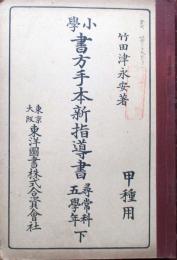 竹田津永安著
甲種用
小學書方手本新指導書
尋常科五學年下
東京大阪東洋圖書株式合資會社